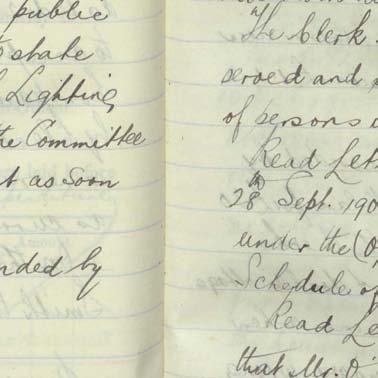 public
to state
Lighting
the Committee
t as Soon
nded by
The Clerk
served and
of persons
Read Let
28th Sept. 190
under the (O
Schedule of
Read Le
that Mr. O'